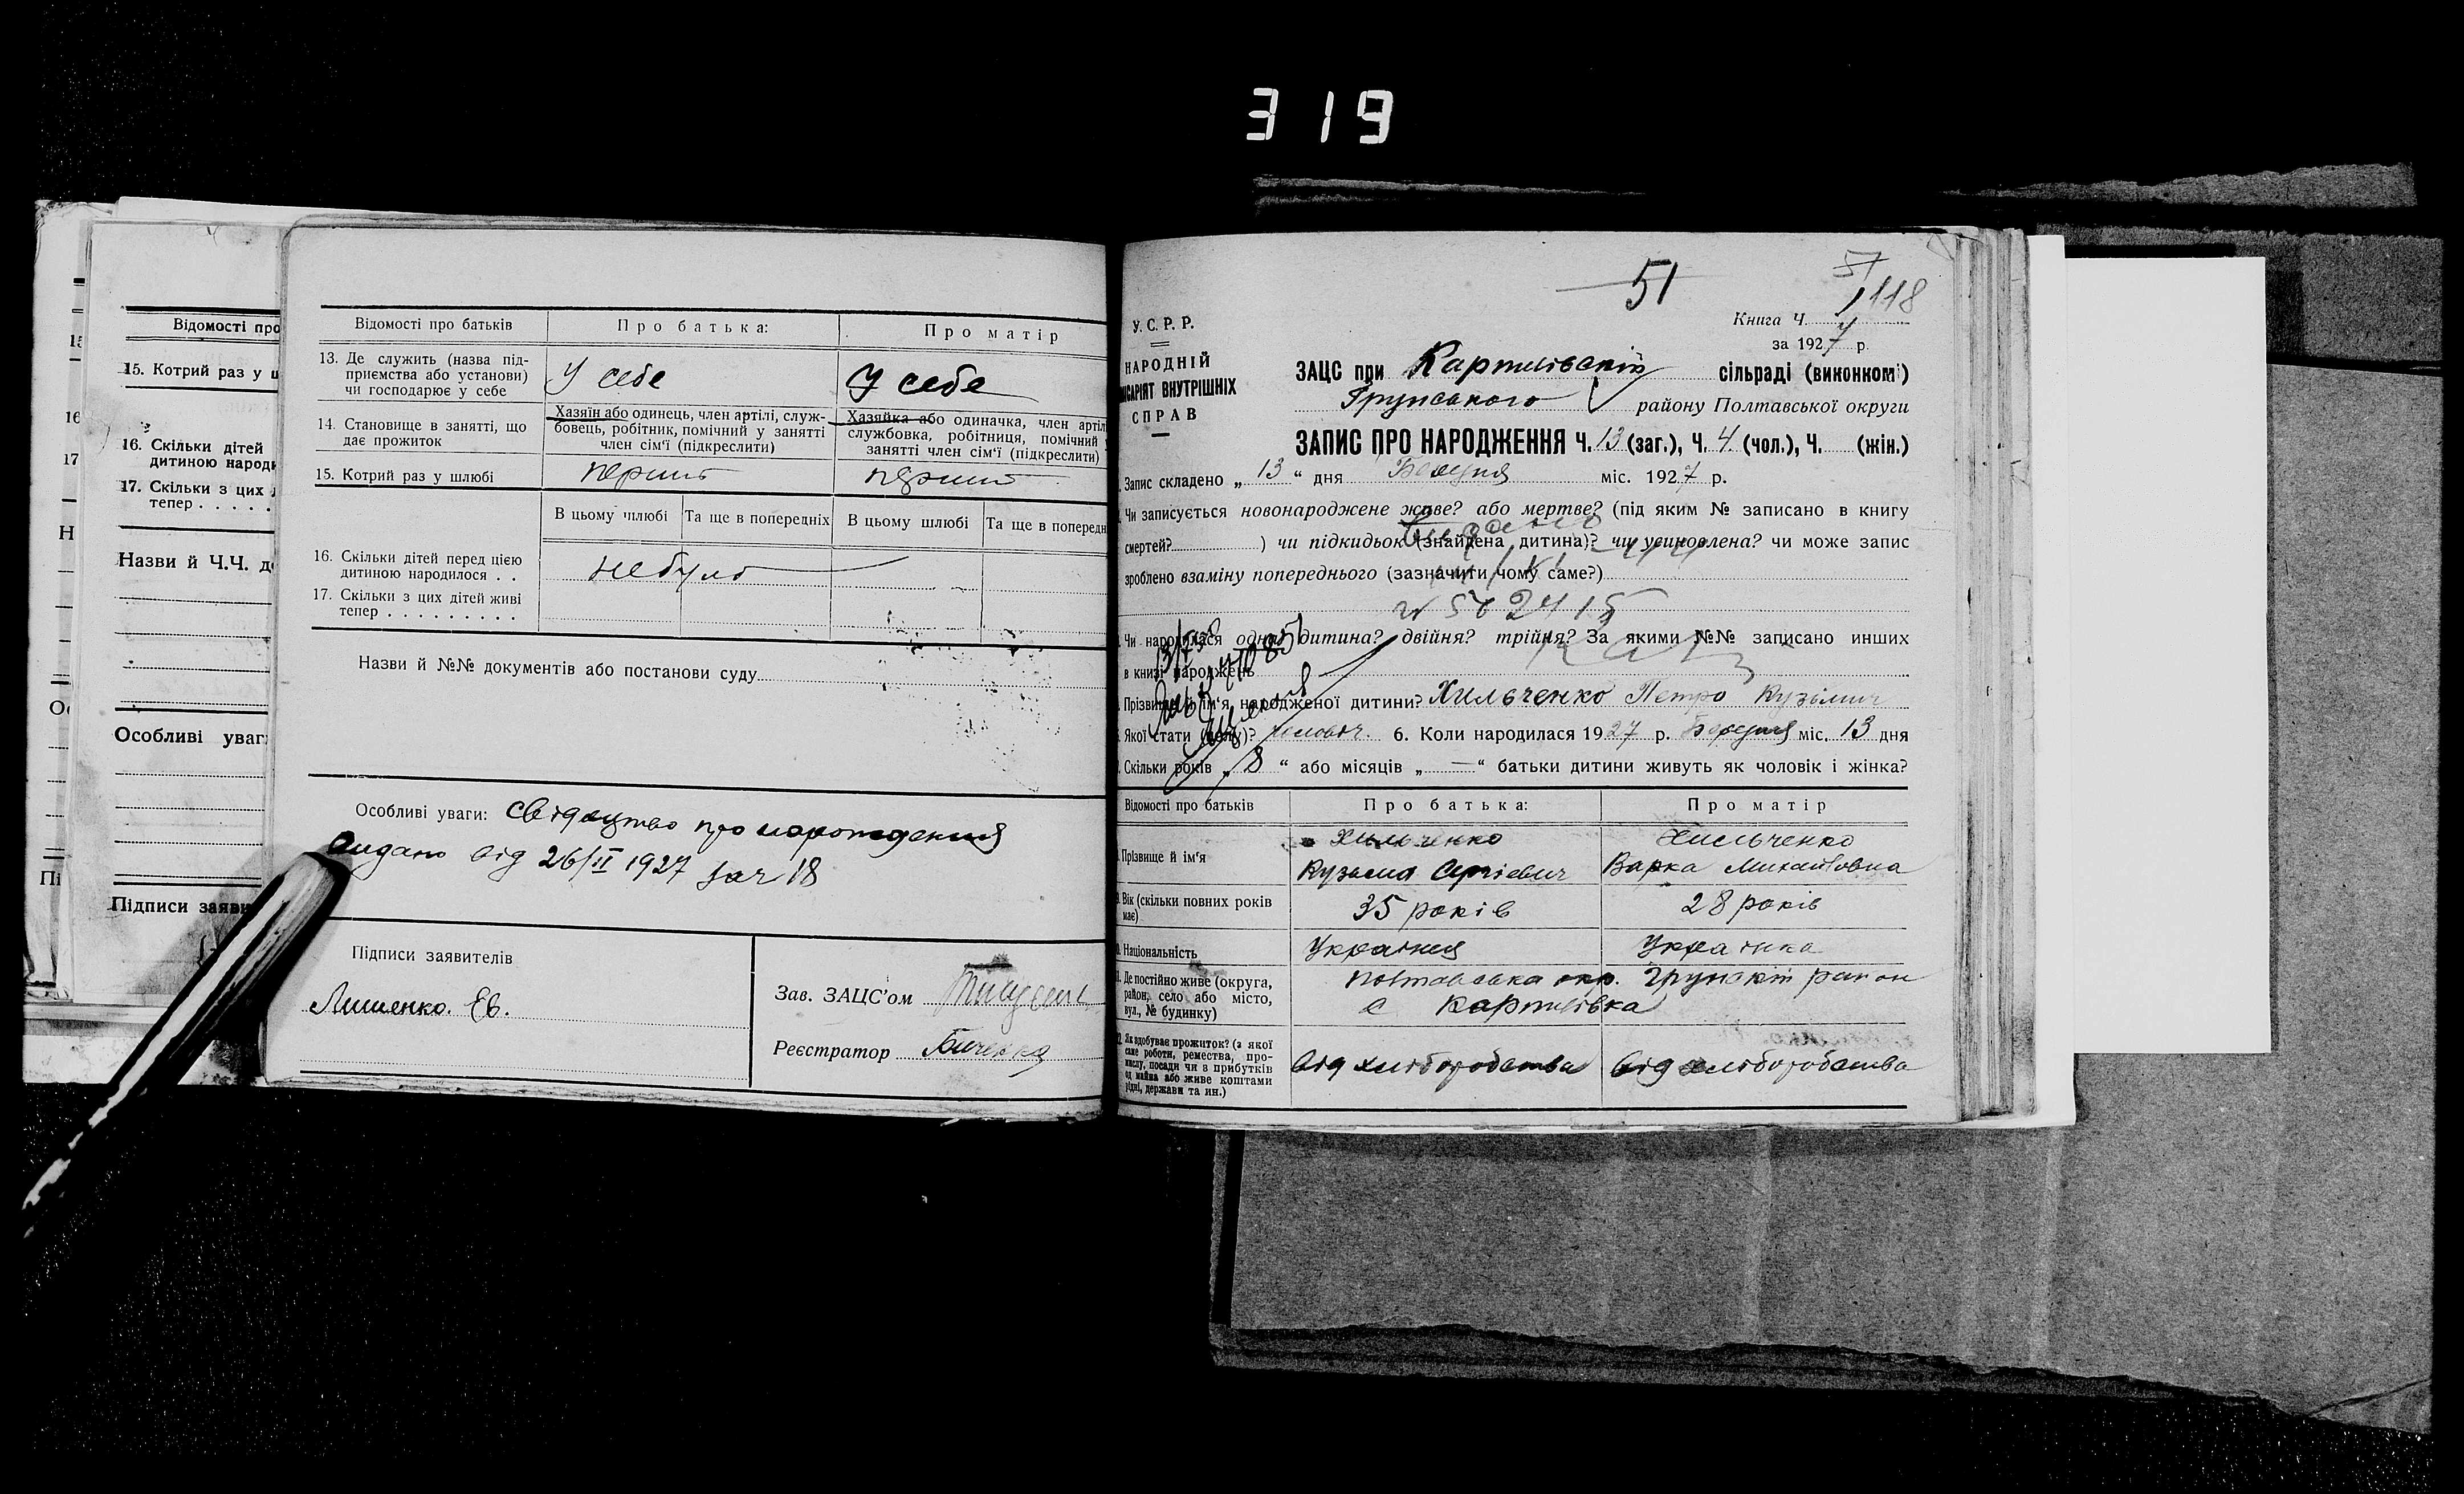 319
Відомості про
15. Котрий раз у ш
16. Скільки дітей
дитиною народи
17. Скільки з цих
тепер . . . . .
Назви й Ч.Ч. д
Особливі уваг
Підписи заяви
Відомості про батьків
Про батька:
Про матір
13. Де служить (назва під-
приємства або установи)
чи господарює у себе
У себе
У себе
14. Становище в занятті, що
дає прожиток
Хазяїн або одинець, член артілі, служ-
бовець, робітник, помічний у занятті
член сім'ї (підкреслити)
Хазяйка або одиначка, член артіл
службовка, робітниця, помічний у
занятті член сім'ї (підкреслити)
15. Котрий раз у шлюбі
перший
перший
В цьому шлюбі
Та ще в попередніх
В цьому шлюбі
Та ще в попередн
16. Скільки дітей перед цією
дитиною народилося . .
небуло
17. Скільки з цих дітей живі
тепер . . . . . . . . .
Назви й №№ документів або постанови суду
Особливі уваги: свідоцтво про народження
видано від 26/II 1927 за ч 18
Підписи заявителів
Лишенко. Єв.
Зав. ЗАЦС'ом
Реєстратор
51
118
У. С. Р. Р.
НАРОДНІЙ
ІСАРІЯТ ВНУТРІШНІХ
СПРАВ
Книга Ч.
за 1927 р.
ЗАЦС при сільраді (виконкомі)
Грунського району Полтавської округи
ЗАПИС ПРО НАРОДЖЕННЯ Ч. 13 (заг.), Ч. 4 (чол.), Ч. (жін.)
Запис складено „ 13 “ дня міс. 1927 р.
Чи записується новонароджене живе? або мертве? (під яким № записано в книгу
смертей? ) чи підкидьок (знайдена дитина)? чи усиновлена? чи може запис
зроблено взаміну попереднього (зазначити чому саме?)
Чи народилася одна дитина? двійня? трійня? За якими №№ записано инших
в книзі народжень
Прізвище й ім'я народженої дитини? Хильченко Петро Кузьмич
Якої стати (полу)? чоловіч. 6. Коли народилася 1927 р. Березня міс. 13 дня
Скільки років „ 8 “ або місяців „ — “ батьки дитини живуть як чоловік і жінка?
Відомості про батьків
Про батька:
Про матір
Прізвище й ім'я
Хильченко
Кузьма Сергіевич
Хильченко
Варка Михайловна
Вік (скільки повних років
має)
35 років
28 років
Національність
Українец
Українка
Де постійно живе (округа,
район, село або місто,
вул., № будинку)
Полтавська окр. Грунский район
с
Як здобуває прожиток? (з якої
саме роботи, ремества, про-
мислу, посади чи в прибутків
од майна або живе коштами
рідні, держави та ин.)
від хліборобства
від хліборобства